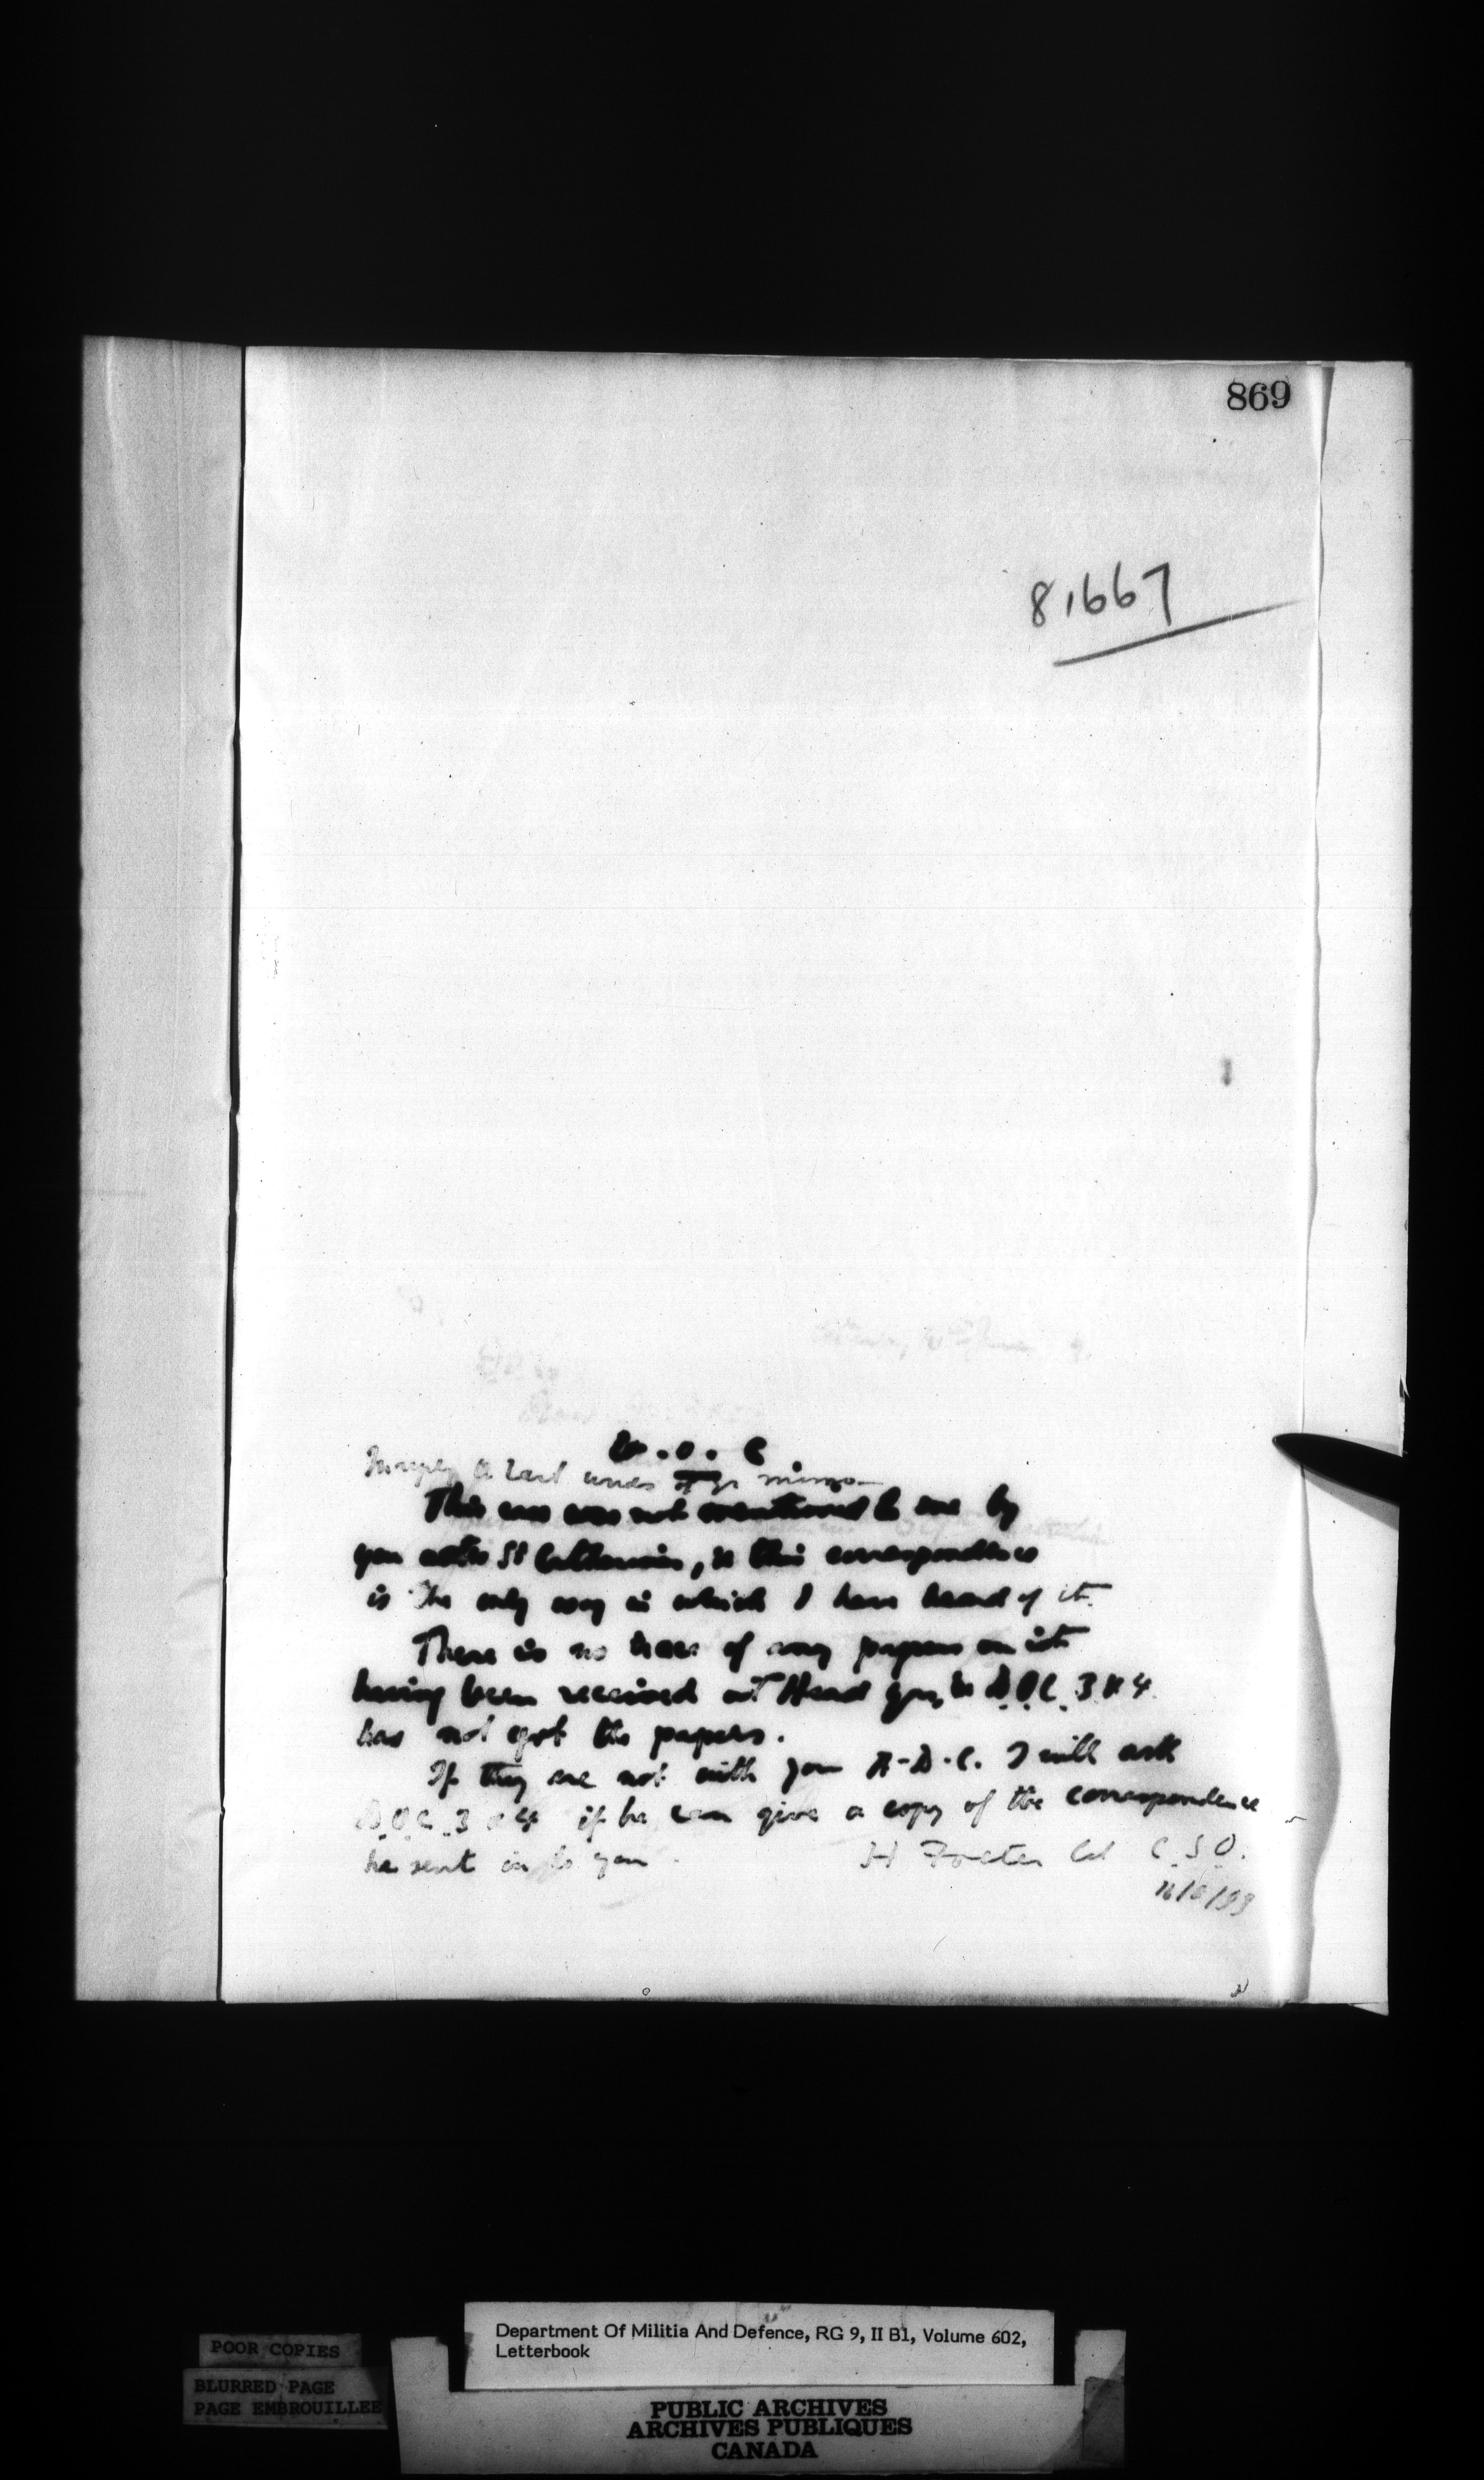 869
81667
G.O.C
In reply to last under minute
This case was not mentioned to me by
you at St Catharines, & this correspondence
is the only way in which I have heard of it.
There is no trace of any papers on it
having been received at Head Qrs, & D.O.C. 3 & 4
has not got the papers.
If they are not with your A-D-C. I will ask
D.O.C. 3 & 4 if he can give a copy of the correspondence
he sent in to you.
H Foster Col C.S.O.
/99
POOR COPIES
BLURRED PAGE
PAGE EMBROUILLEE
Department Of Militia And Defence, RG 9, II B1, Volume 602,
Letterbook
PUBLIC ARCHIVES
ARCHIVES PUBLIQUES
CANADA